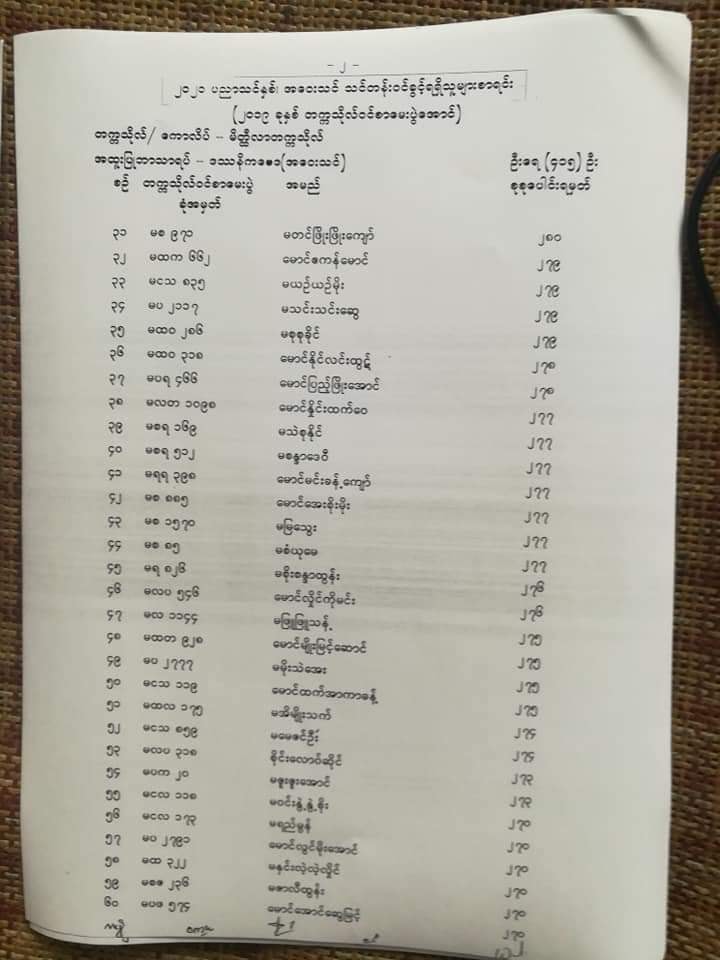 - ၂ -
၂၀၂၁ ပညာသင်နှစ်၊ အဝေးသင် သင်တန်းဝင်ခွင့်ရရှိသူများစာရင်း
(၂၀၁၉ ခုနှစ် တက္ကသိုလ်ဝင်စာမေးပွဲအောင်)
တက္ကသိုလ်/ ကောလိပ် - မိတ္ထီလာတက္ကသိုလ်
အထူးပြုဘာသာရပ် - ဒဿနိကဗေဒ(အဝေးသင်) ဦးရေ (၄၁၅) ဦး
စဉ် တက္ကသိုလ်ဝင်စာမေးပွဲ အမည် စုစုပေါင်းရမှတ်
ခုံအမှတ်
၃၁ မစ ၉၇၁ မတင်ဖြိုးဖြိုးကျော် ၂၈၀
၃၂ မထက ၆၆၂ မောင်ဧကန်မောင် ၂၇၉
၃၃ မငသ ၈၃၅ မယဉ်ယဉ်မိုး ၂၇၉
၃၄ မပ ၂၁၁၇ မသင်းသင်းဆွေ ၂၇၉
၃၅ မထဝ ၂၈၆ မစုစုခိုင် ၂၇၉
၃၆ မထဝ ၃၁၈ မောင်နိုင်လင်းထွဋ် ၂၇၈
၃၇ မပရ ၄၆၆ မောင်ပြည့်ဖြိုးအောင် ၂၇၈
၃၈ မလတ ၁၀၉၈ မောင်နှိုင်းထက်ဝေ ၂၇၇
၃၉ မစရ ၁၆၉ မသဲစုနိုင် ၂၇၇
၄၀ မစရ ၅၁၂ မစန္ဒာဒေဝီ ၂၇၇
၄၁ မရရ ၃၉၈ မောင်မင်းခန့်ကျော် ၂၇၇
၄၂ မစ ၈၈၅ မောင်အေးစိုးမိုး ၂၇၇
၄၃ မစ ၁၅၇၀ မမြသွေး ၂၇၇
၄၄ မစ ၈၅ မစံယုမေ ၂၇၇
၄၅ မရ ၈၂၆ မစိုးစန္ဒာထွန်း ၂၇၇
၄၆ မလပ ၅၄၆ မောင်လှိုင်ကိုမင်း ၂၇၆
၄၇ မလ ၁၁၄၄ မဖြူဖြူသန့် ၂၇၆
၄၈ မထတ ၉၂၈ မောင်မျိုးမြင့်ဆောင် ၂၇၅
၄၉ မပ ၂၇၇၇ မမိုးသဲအေး ၂၇၅
၅၀ မငသ ၁၁၉ မောင်ထက်အာကာခန့် ၂၇၅
၅၁ မထလ ၁၇၅ မအိမျိုးသက် ၂၇၅
၅၂ မငသ ၈၅၉ မမေဇင်ဦး ၂၇၄
၅၃ မလပ ၃၁၈ စိုင်းလောဝ်ဆိုင် ၂၇၄
၅၄ မပက ၂၀ မဇူးဇူးအောင် ၂၇၃
၅၅ မငလ ၁၁၈ မဝင်းနွဲ့နွဲ့စိုး ၂၇၃
၅၆ မငလ ၁၇၃ မရည်မွန် ၂၇၀
၅၇ မပ ၂၇၉၁ မောင်လွင်မိုးအောင် ၂၇၀
၅၈ မထ ၃၂၂ မနှင်းလှဲ့လှဲ့လှိုင် ၂၇၀
၅၉ မစဇ ၂၃၆ မဇာလီထွန်း ၂၇၀
၆၀ မပဖ ၅၇၄ မောင်အောင်ဆွေမြင့် ၂၇၀
၂၇၀